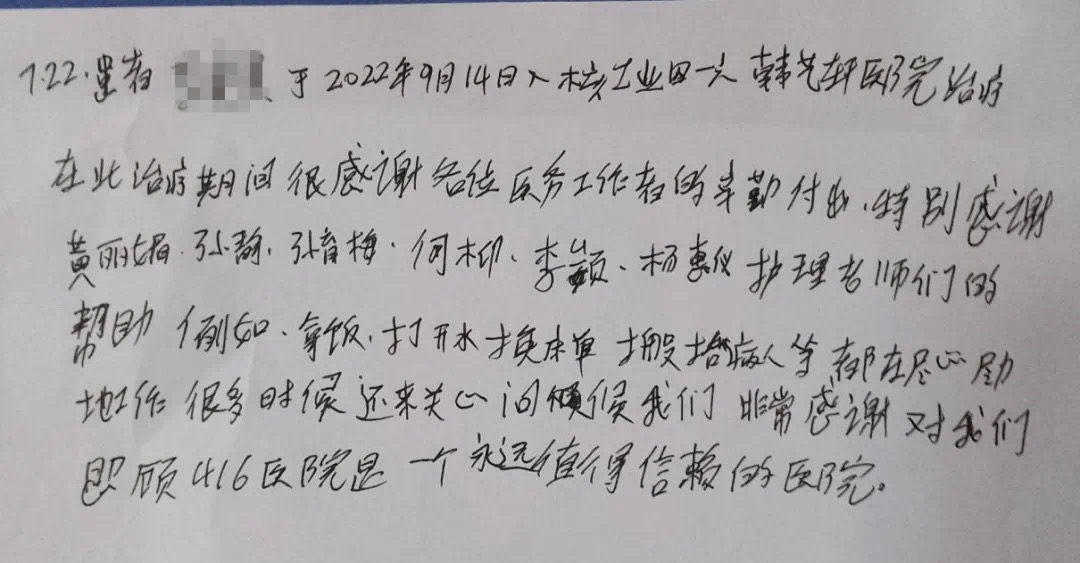 7.22.患者 于2022年9月14日入核工业四一六 医院治疗
在此治疗期间很感谢各位医务工作者的辛勤付出.特别感谢
黄丽娟.孙静.张春梅.何柳、李颖、杨惠仪护理老师们的
帮助例如.拿饭.打开水换床单搬抬病人等都在尽心尽力
地工作很多时候还来关心问候我们非常感谢对我们
照顾416医院是一个永远值得信赖的医院。